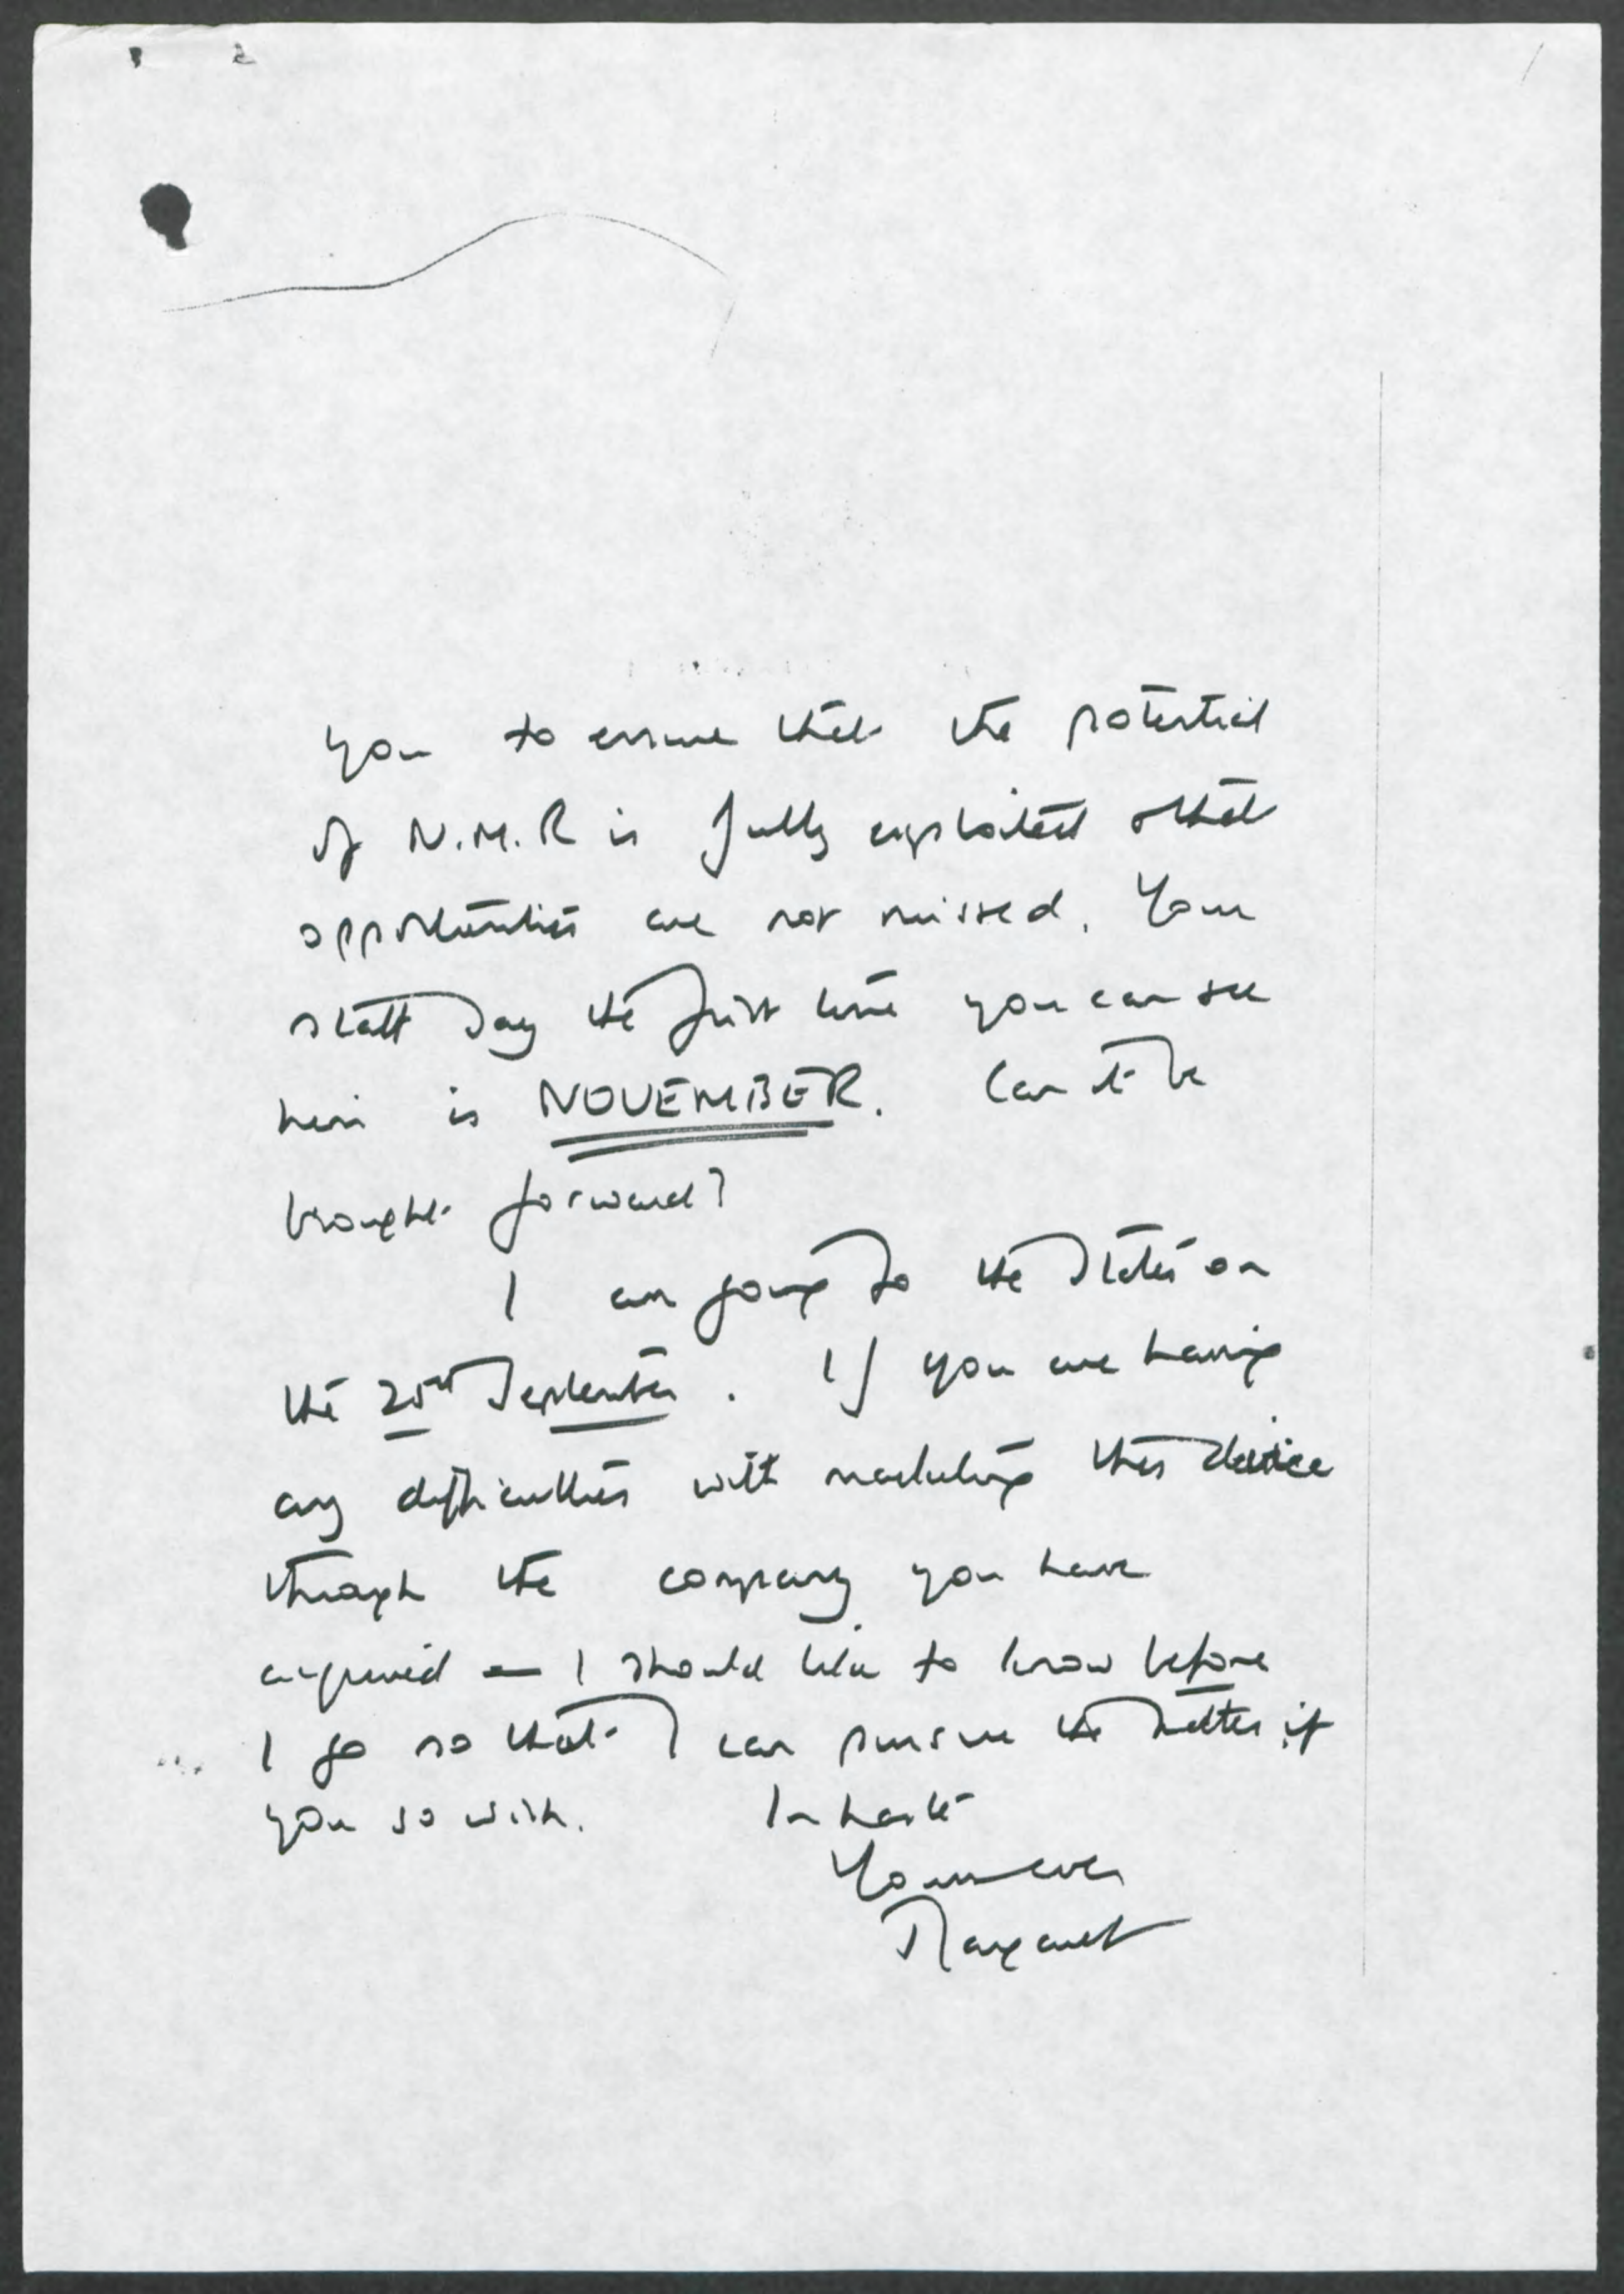 you to ensure that the potential
of N.M.R is fully exploited & that
opportunities are not missed. Your
staff say the first time you can see
him is NOVEMBER. Can it be
brought forward?
I am going to the States on
the 25th September. If you are having
any difficulties with marketing this device
through the company you have
acquired — I should like to know before
I go so that I can pursue the matter, if
you so wish. In haste
Yours ever
Margaret